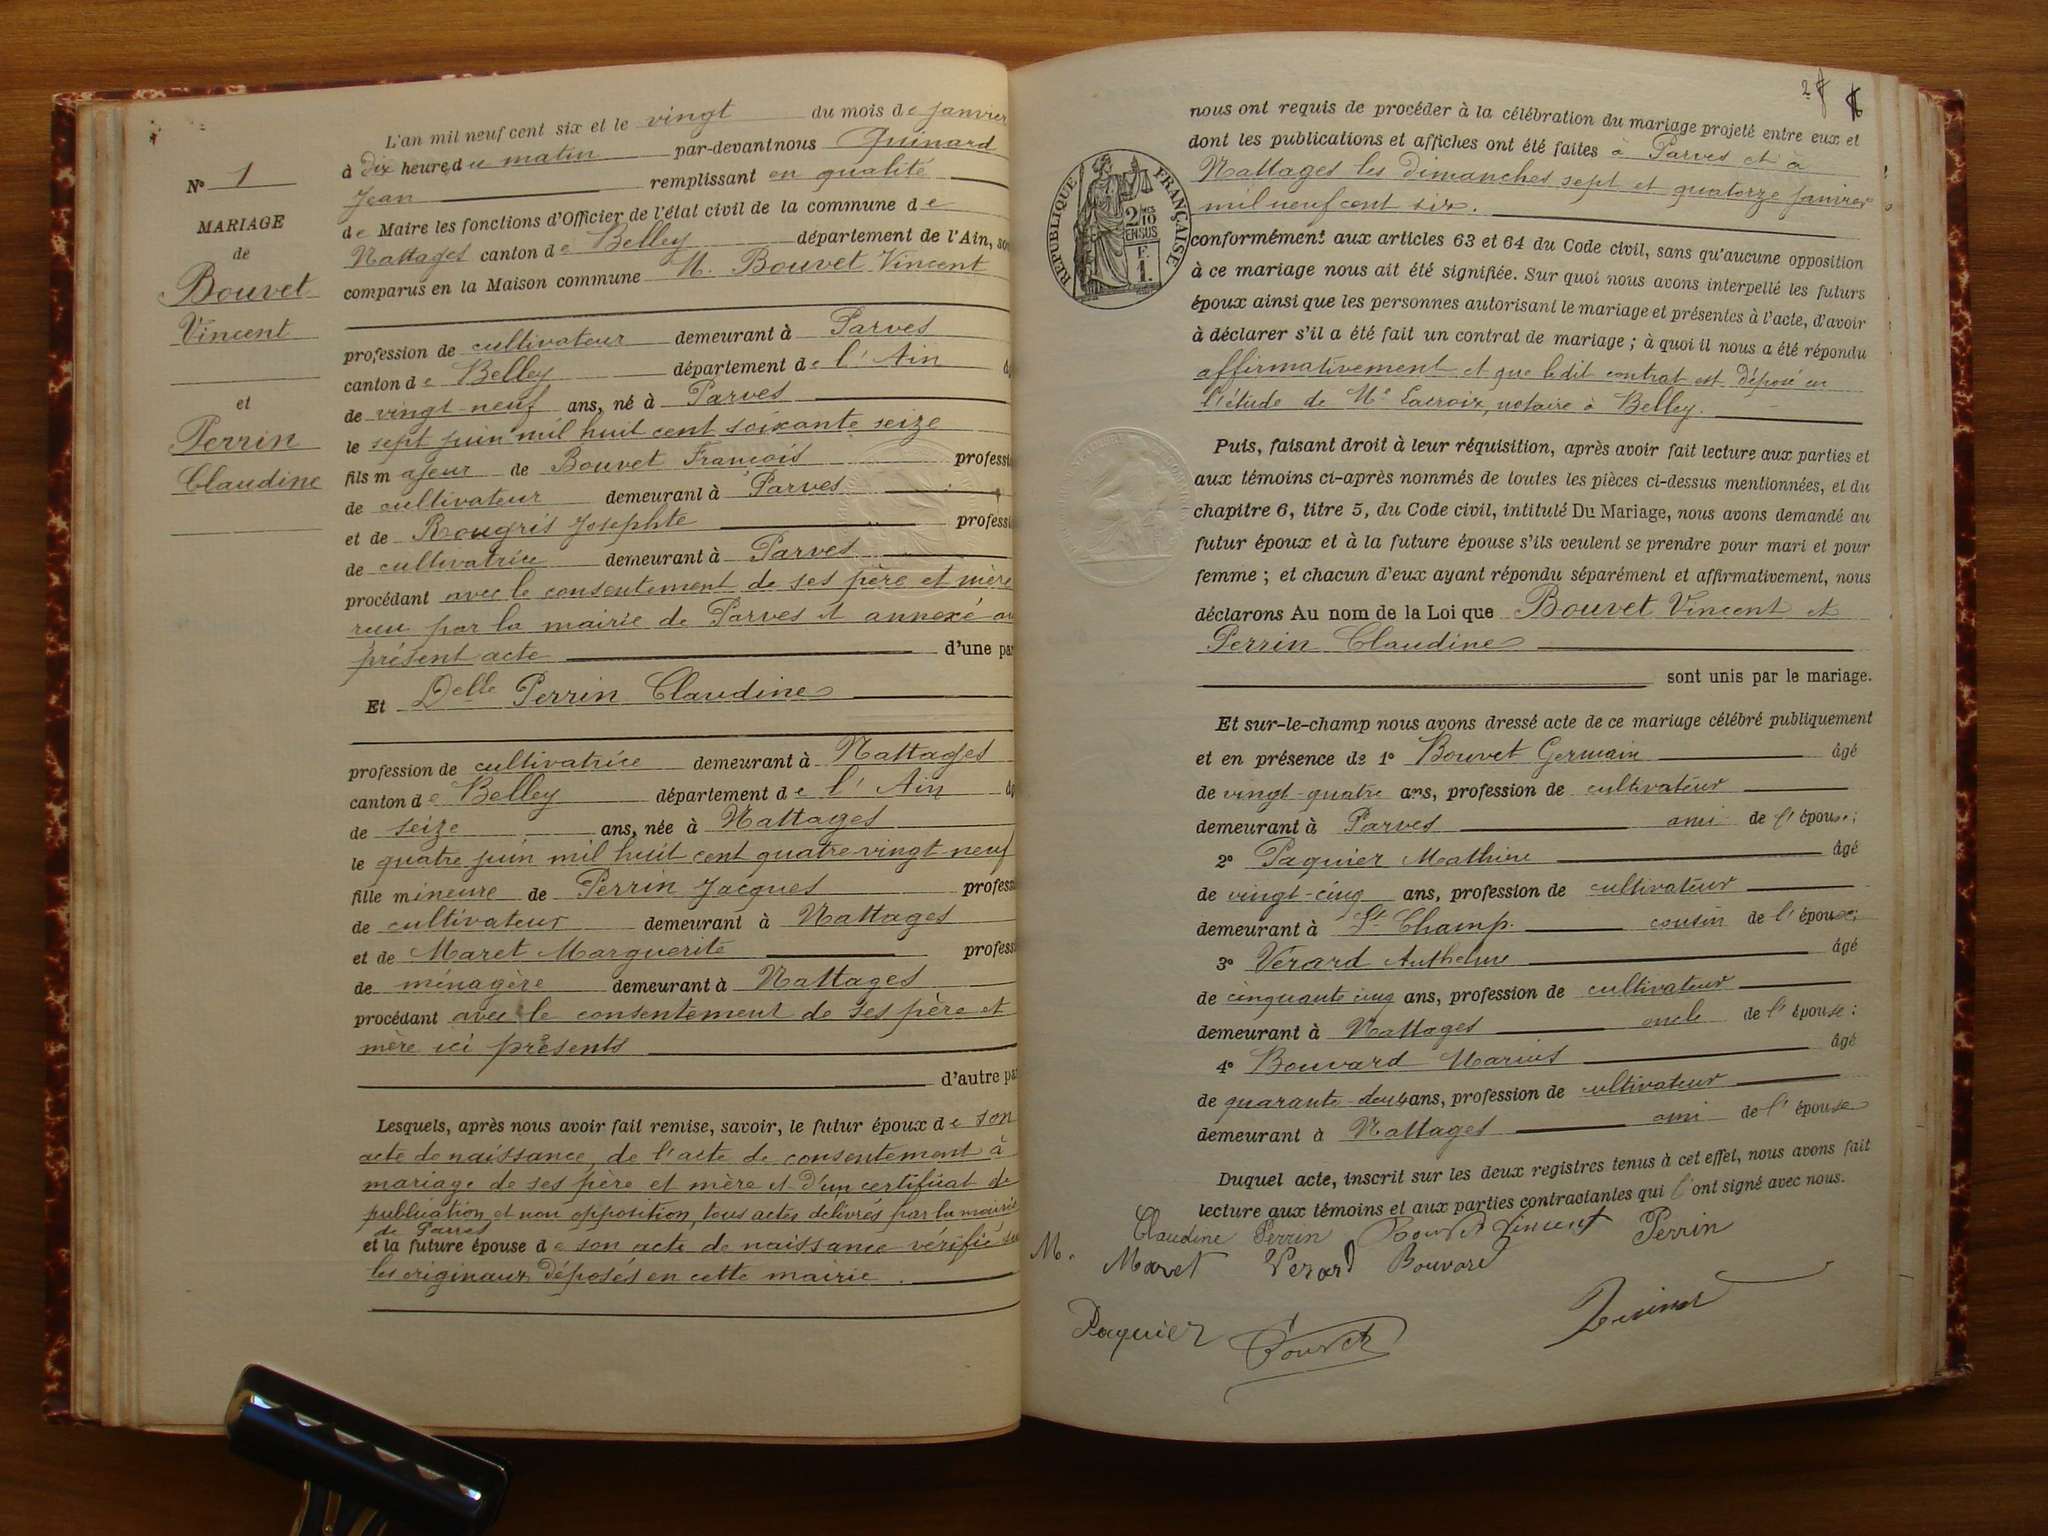 N° 1
MARIAGE
de
Bouvet
Vincent
et
Perrin
Claudine
L'an mil neuf cent six et le vingt du mois de janvier
à dix heure du matin par-devant nous Guinard
Jean remplissant en qualité
de Maire les fonctions d'Officier de l'état civil de la commune de
Nattages canton de Belley département de l'Ain, so
comparus en la Maison commune M. Bouvet Vincent
profession de cultivateur demeurant à Parves
canton de Belley département de l'Ain
de vingt-neuf ans, né à Parves
le sept juin mil huit cent soixante seize
fils majeur de Bouvet François professi
de cultivateur demeurant à Parves
et de Rougris Josephte professi
de cultivatrice demeurant à Parves
procédant avec le consentement de ses père et mère
reçu par la mairie de Parves et annexé au
présent acte d'une pa
Et Delle Perrin Claudine
profession de cultivatrice demeurant à Nattages
canton de Belley département de l'Ain
de seize ans, née à Nattages
le quatre juin mil huit cent quatre-vingt-neuf
fille mineure de Perrin Jacques profess
de cultivateur demeurant à Nattages
et de Maret Marguerite profess
de ménagère demeurant à Nattages
procédant avec le consentement de ses père et
mère ici présents
d'autre pa
Lesquels, après nous avoir fait remise, savoir, le futur époux de son
acte de naissance, de l'acte de consentement à
mariage de ses père et mère et d'un certificat de
publication et non opposition, tous actes délivrés par la mairie
de Parves
et la future épouse de son acte de naissance vérifié sur
les originaux déposés en cette mairie.
2
nous ont requis de procéder à la célébration du mariage projeté entre eux et
dont les publications et affiches ont été faites à Parves et à
Nattages les dimanches sept et quatorze janvier
mil neuf cent six.
RÉPUBLIQUE FRANÇAISE
2/10 EN SUS
F. 1.
conformément aux articles 63 et 64 du Code civil, sans qu'aucune opposition
à ce mariage nous ait été signifiée. Sur quoi nous avons interpellé les futurs
époux ainsi que les personnes autorisant le mariage et présentes à l'acte, d'avoir
à déclarer s'il a été fait un contrat de mariage ; à quoi il nous a été répondu
affirmativement et que ledit contrat est déposé en
l'étude de Me Lacroix, notaire à Belley.
Puis, faisant droit à leur réquisition, après avoir fait lecture aux parties et
aux témoins ci-après nommés de toutes les pièces ci-dessus mentionnées, et du
chapitre 6, titre 5, du Code civil, intitulé Du Mariage, nous avons demandé au
futur époux et à la future épouse s'ils veulent se prendre pour mari et pour
femme ; et chacun d'eux ayant répondu séparément et affirmativement, nous
déclarons Au nom de la Loi que Bouvet Vincent et
Perrin Claudine
sont unis par le mariage.
Et sur-le-champ nous avons dressé acte de ce mariage célébré publiquement
et en présence de 1° Bouvet Germain âgé
de vingt-quatre ans, profession de cultivateur
demeurant à Parves ami de l'épouse;
2° Paquier Mathieu âgé
de vingt-cinq ans, profession de cultivateur
demeurant à St Champ. cousin de l'épouse;
3° Verard Anthelme âgé
de cinquante cinq ans, profession de cultivateur
demeurant à Nattages oncle de l'épouse:
4° Bouvard Marius âgé
de quarante-deux ans, profession de cultivateur
demeurant à Nattages ami de l'épouse
Duquel acte, inscrit sur les deux registres tenus à cet effet, nous avons fait
lecture aux témoins et aux parties contractantes qui l'ont signé avec nous.
Claudine Perrin Bouvet Vincent Perrin
M. Maret Verard Bouvard
Paquier Bouvet Guinard